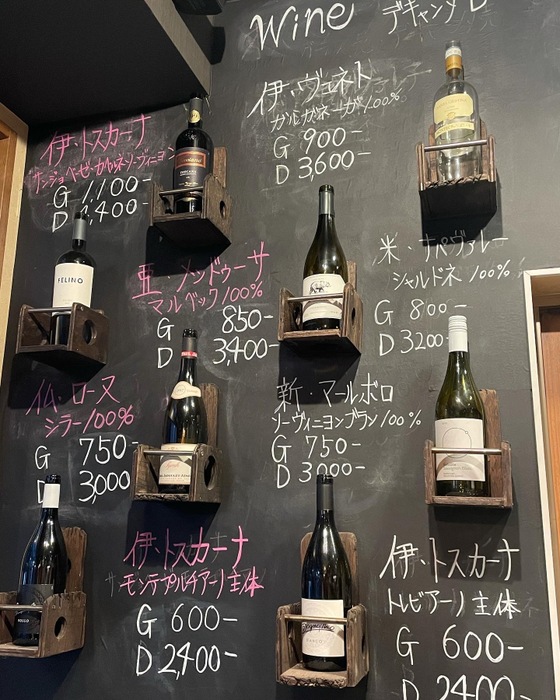 Wine デキャンタ D
伊・ヴェネト
ガルガネーガ100%
G 900-
D 3,600-
伊・トスカーナ
サンジョベーゼ・カベルネ・ソーヴィニヨン
G 1,100-
D 4,400-
亜・メンドゥーサ
マルベック100%
G 850-
D 3,400-
米・ナパヴァレー
シャルドネ 100%
G 800-
D 3200-
仏・ローヌ
シラー100%
G 750-
D 3,000
新・マールボロ
ソーヴィニヨンブラン100%
G 750-
D 3000-
伊・トスカーナ
モンテプルチアーノ主体
G 600-
D 2,400-
伊・トスカーナ
トレビアーノ主体
G 600-
D 2,400-
FELINO